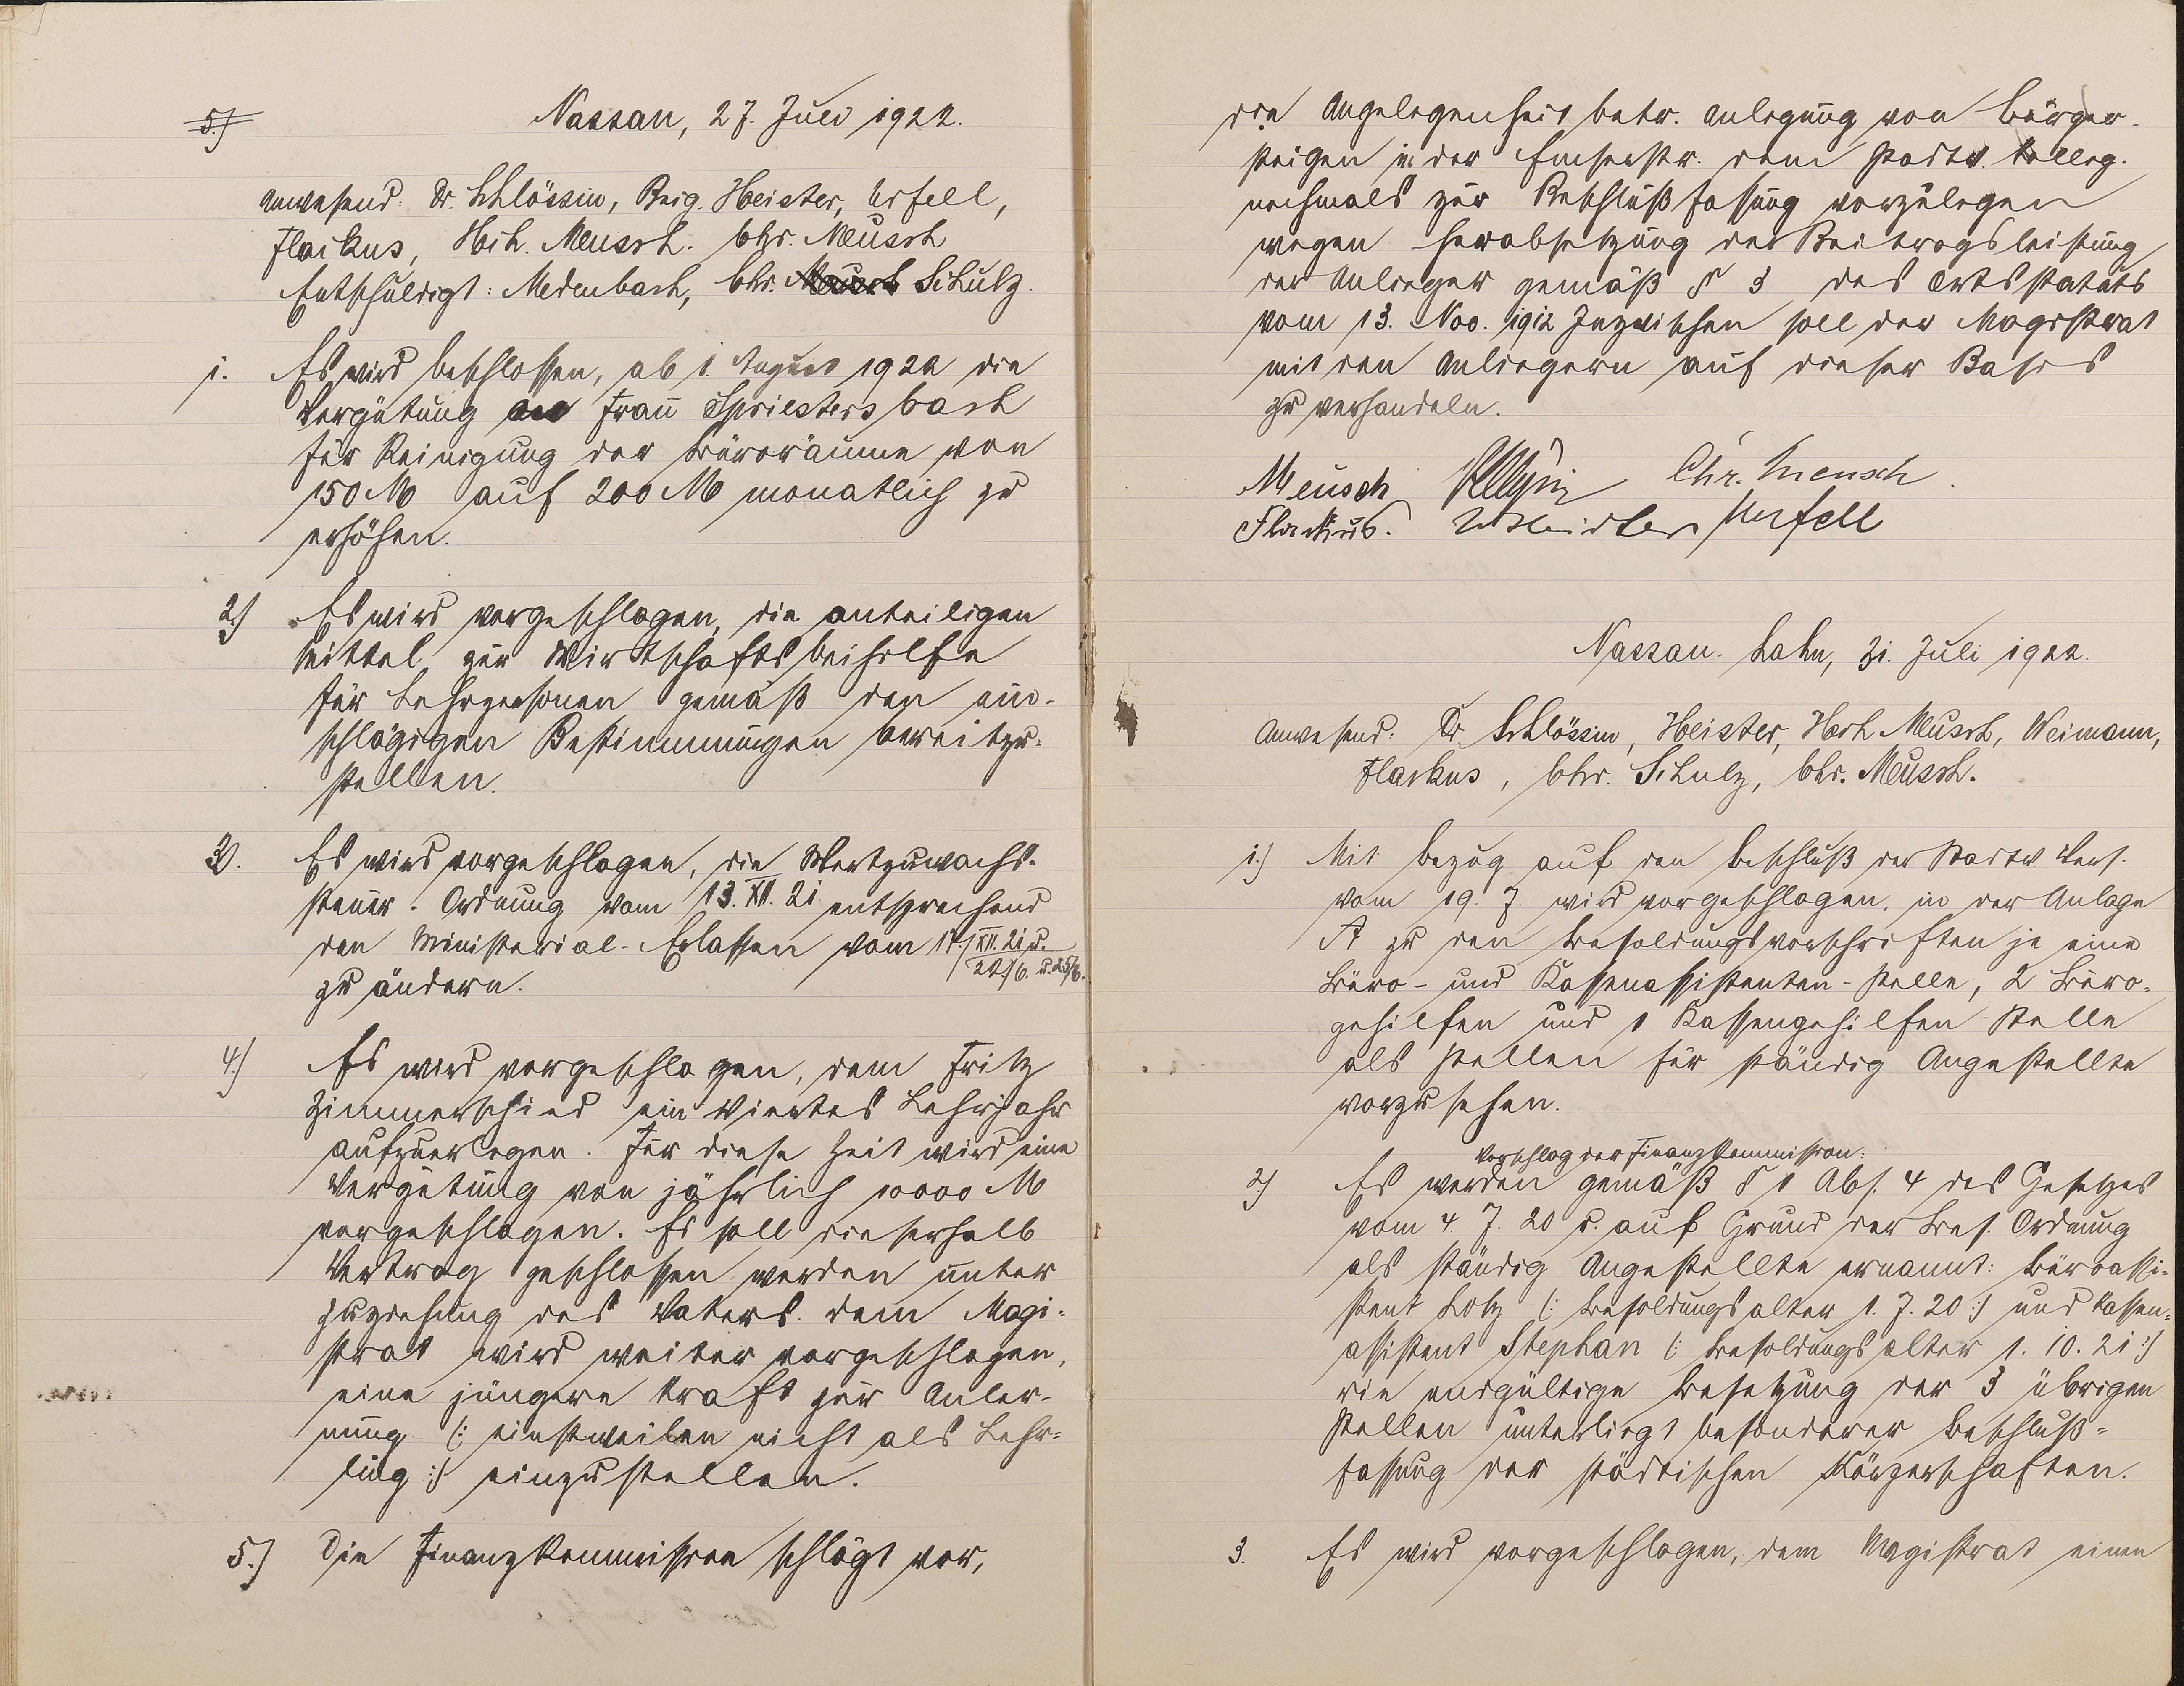 5.)
Nassau, 27. Juli 1922.
Anwesend: Dr. Schlössin, Beig. Heister, Urfell,
Flackus, Hch. Meusch. Chr. Meusch
Entschuldigt: Medenbach, Chr. Meusch Schulz.
1. Es wird beschlossen, ab 1. August 1922 die
Vergütung an Frau Spriestersbach
für Reinigung der Büroräume von
150 M auf 200 M monatlich zu
erhöhen.
2.) Es wird vorgeschlagen, die anteiligen
Mittel zur Wirtschaftsbeihilfe
für Lehrpersonen gemäß den ein-
schlägigen Bestimmungen bereitzu-
stellen.
3. Es wird vorgeschlagen, die Wertzuwachs-
steuer-Ordnung vom 13. XII. 21 entsprechend
den Ministerial-Erlassen vom 17./XII. 21 u.
22./6. u. 25/6.
zu ändern.
4.) Es wird vorgeschlagen, dem Fritz
Zimmerschied ein viertes Lehrjahr
aufzuerlegen. Für diese Zeit wird eine
Vergütung von jährlich 10000 M
vorgeschlagen. Es soll dieserhalb
Vertrag geschlossen werden unter
Zuziehung des Vaters. Dem Magi-
strat wird weiter vorgeschlagen,
eine jüngere Kraft zur Anler-
nung (: einstweilen nicht als Lehr-
ling :) einzustellen.
5.) Die Finanzkommission schlägt vor,
die Angelegenheit betr. Anlegung von Bürger-
steigen in der Emserstr. dem Stadtv. Kolleg.
nochmals zur Beschlußfassung vorzulegen
wegen Herabsetzung der Beitragsleistung
der Anlieger gemäß § 3 des Ortsstatuts
vom 13. Nov. 1912 Inzwischen soll der Magistrat
mit den Anliegern auf dieser Basis
zu verhandeln.
Meusch Chr. Meusch.
Flackus. Heister Urfell
Nassau-Lahn, 31. Juli 1922.
Anwesend: Dr. Schlössin, Heister, Hch. Meusch, Weimann,
Flackus, Chr. Schulz, Chr. Meusch.
1.) Mit Bezug auf den Beschluß der Stadtv. Vers.
vom 19. 7. wird vorgeschlagen, in der Anlage
A zu den Besoldungsvorschriften je eine
Büro- und Kassenassistenten-Stelle, 2 Büro-
gehilfen und 1 Kassengehilfen-Stelle
als Stellen für ständig Angestellte
vorzusehen.
Vorschlag der Finanzkommission:
2.) Es werden gemäß § 1 Abs. 4 des Gesetzes
vom 4. 7. 20 u. auf Grund der Bes. Ordnung
als ständig Angestellte ernannt: Büroassi-
stent Lotz (: Besoldungsalter 1. 7. 20 :) und Kassen-
assistent Stephan (: Besoldungsalter 1. 10. 21 :)
die endgültige Besetzung der 3 übrigen
Stellen unterliegt besonderer Beschluß-
fassung der städtischen Körperschaften.
3. Es wird vorgeschlagen, dem Magistrat einen